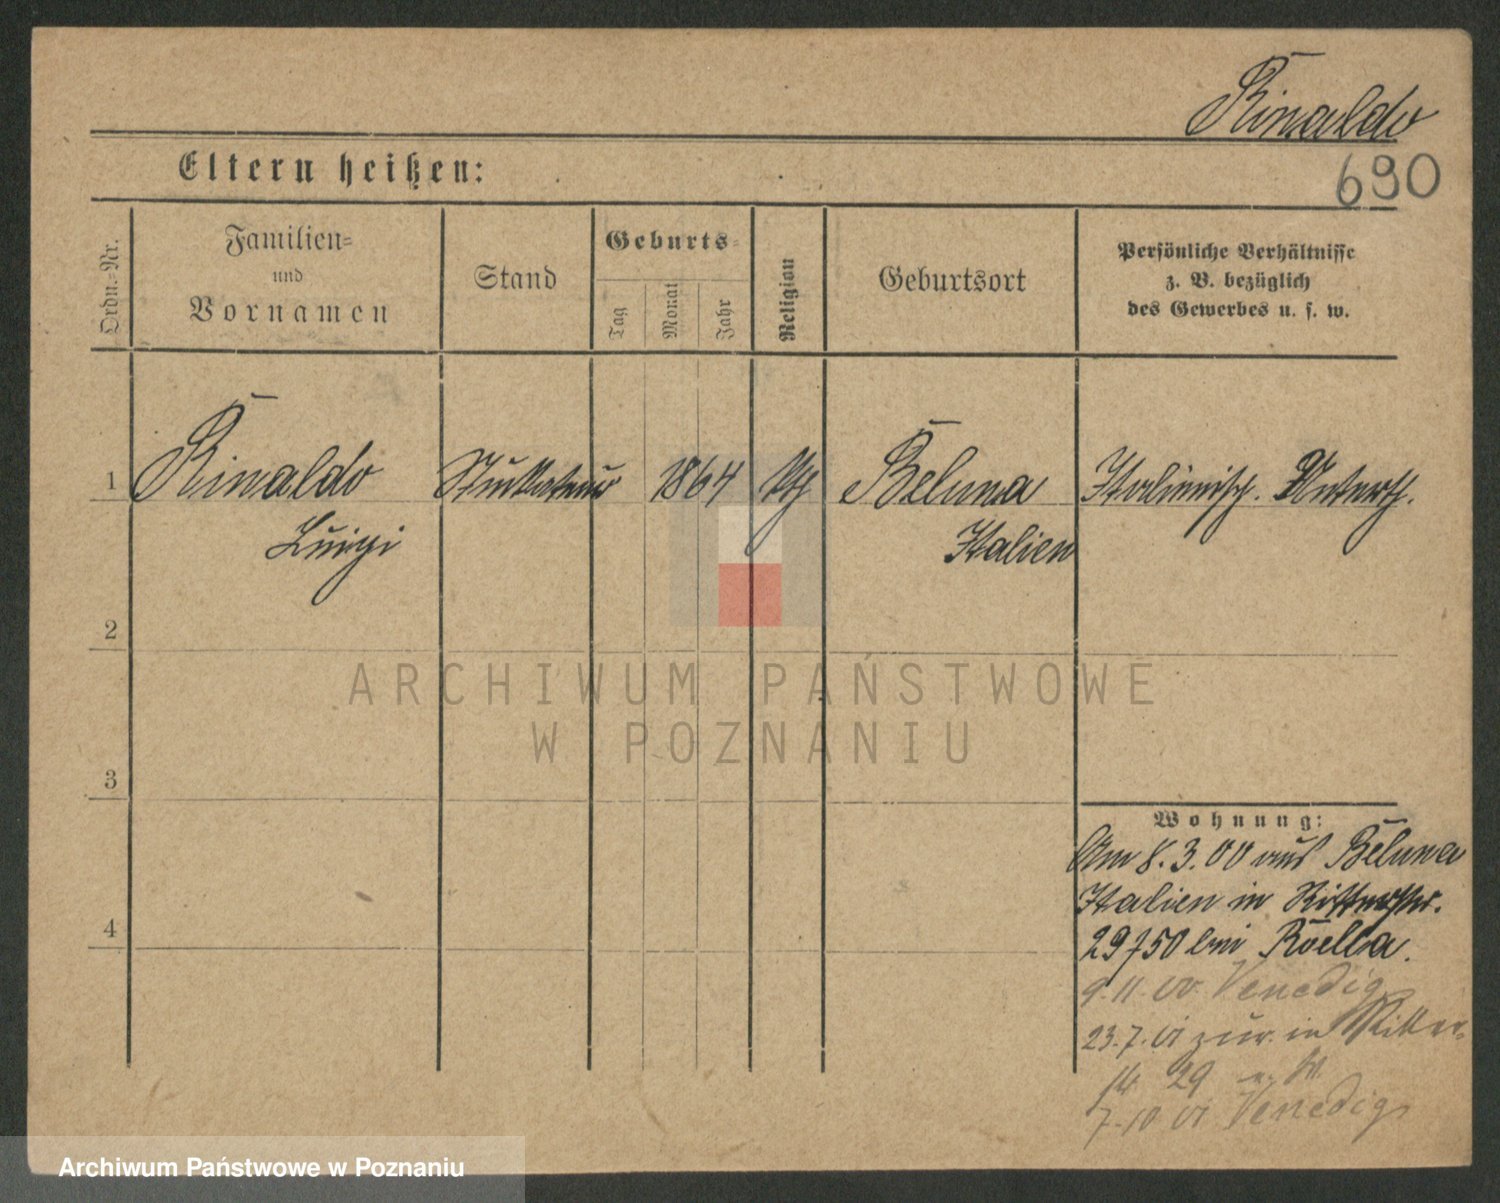 Rinaldo
Eltern heißen:
690
Ordn.-Nr.
Familien-
und
Vornamen
Stand
Geburts-
Tag
Monat
Jahr
Religion
Geburtsort
Persönliche Verhältnisse
z. B. bezüglich
des Gewerbes u. s. w.
1
Rinaldo
Stuckateur
1864
Beluna
Italienisch.
Luigi
Italien
2
ARCHIWUM PAŃSTWOWE
W POZNANIU
3
Wohnung:
Am 8.3.00 aus Beluna
Italien in
4
29 750 bei Roella.
9.11.00. Venedig
23.7.01 zur. in Ritter-
29
7.10 01 Venedig
Archiwum Państwowe w Poznaniu